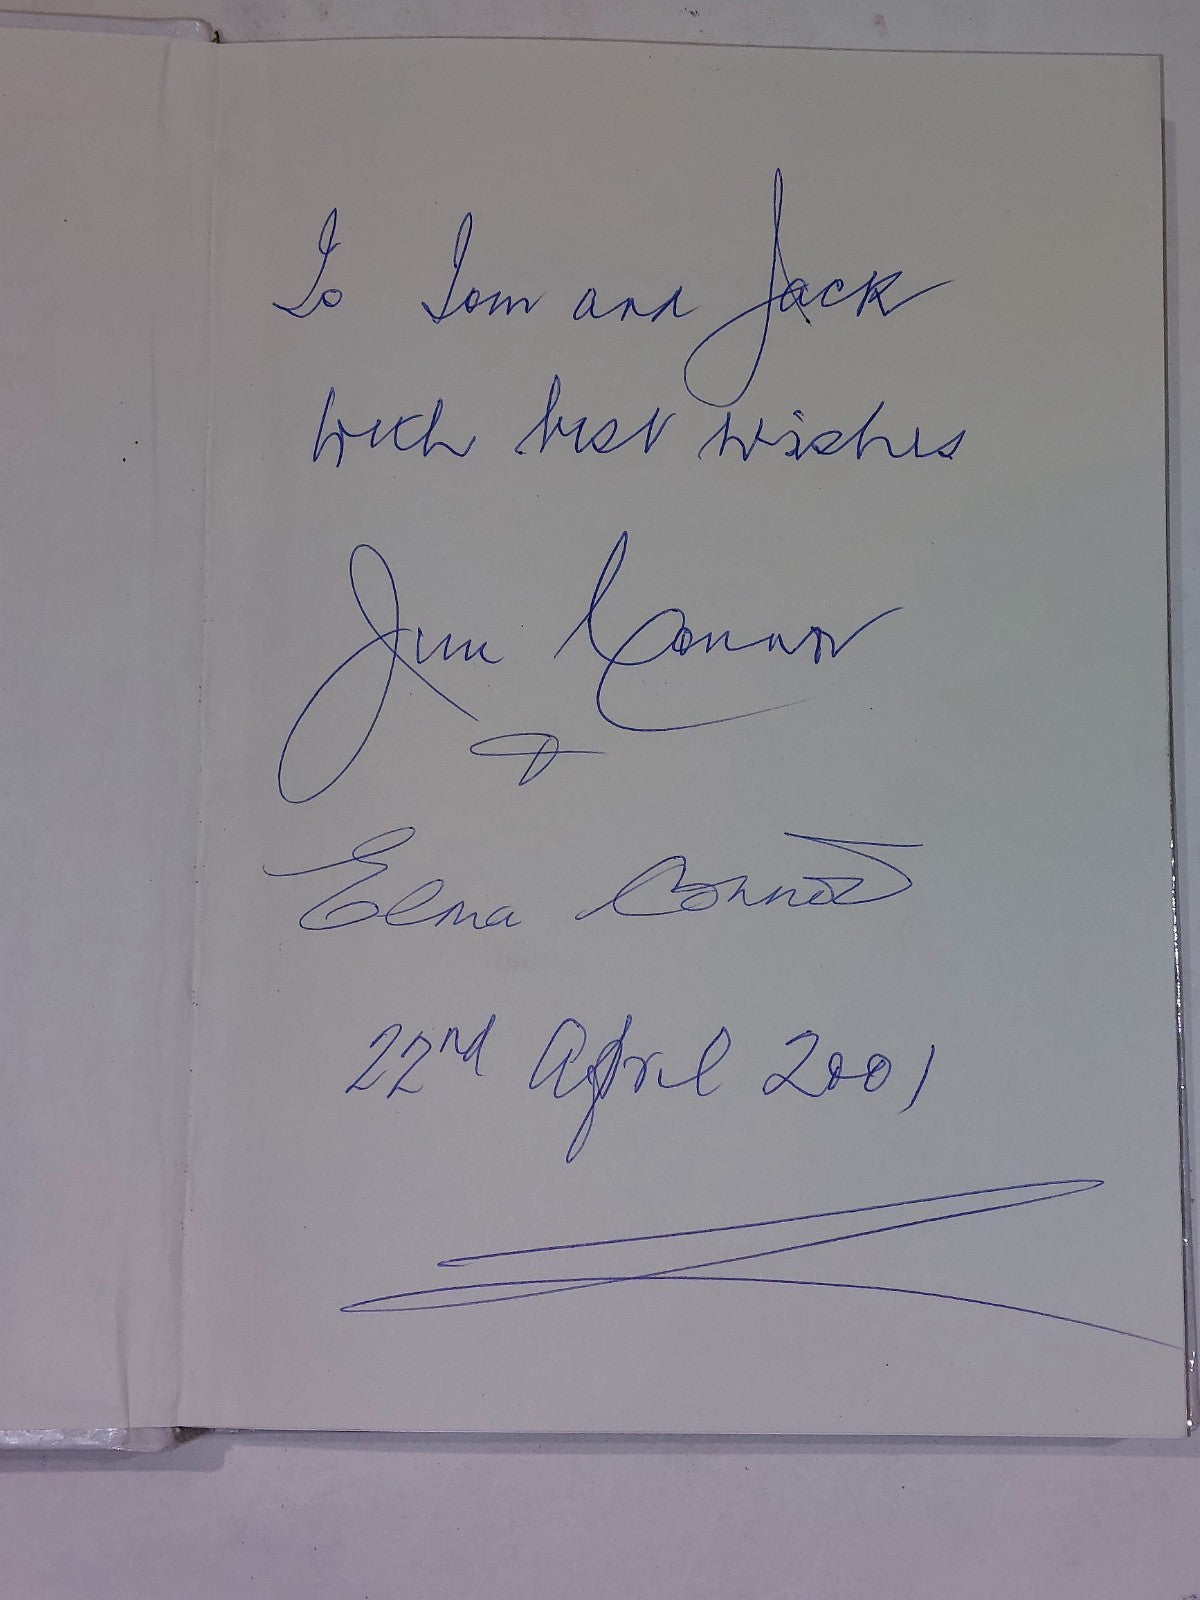 To Tom and Jack
with best wishes
Jim Connor
&
Elma Connor
22nd April 2001